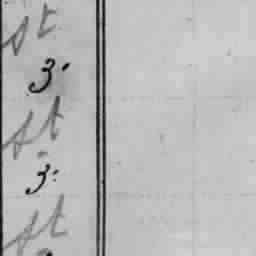 st
3.
st
3:
st